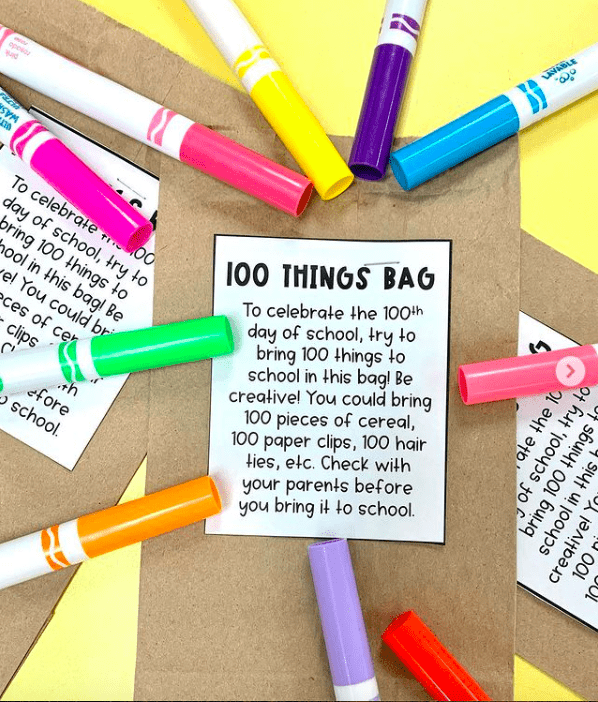 100 THINGS BAG
To celebrate the 100th
day of school, try to
bring 100 things to
school in this bag! Be
creative! You could bring
100 pieces of cereal,
100 paper clips, 100 hair
ties, etc. Check with
your parents before
you bring it to school.
To celebrate
day of school, try to
bring 100 things to
in this bag! Be
You could
clips,
before
school.
100
of school, try to
bring 100 things
school in this
creative!
100